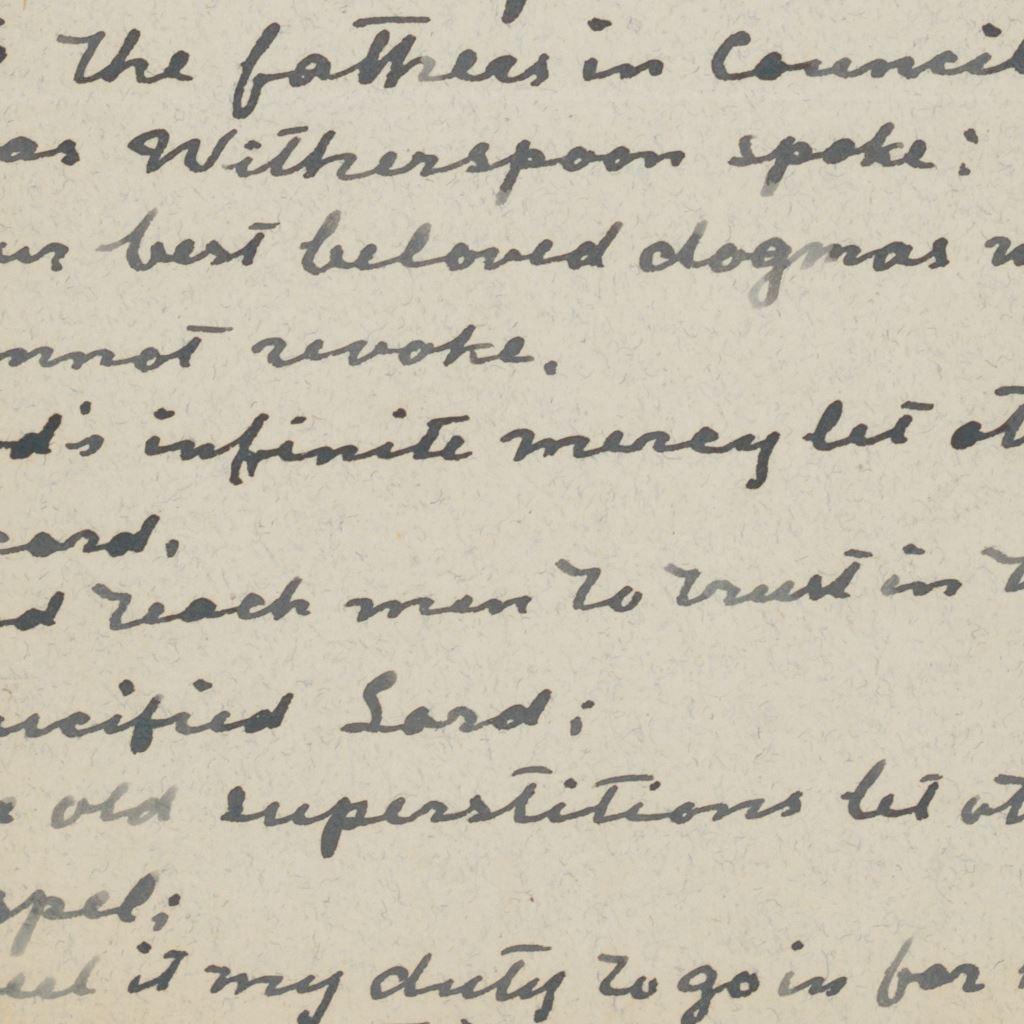 The fathers in Council
as Witherspoon spoke:
best beloved dogmas
revoke.
infinite mercy let

teach men to trust in
Lord;
old superstitions let

it my duty to go in for